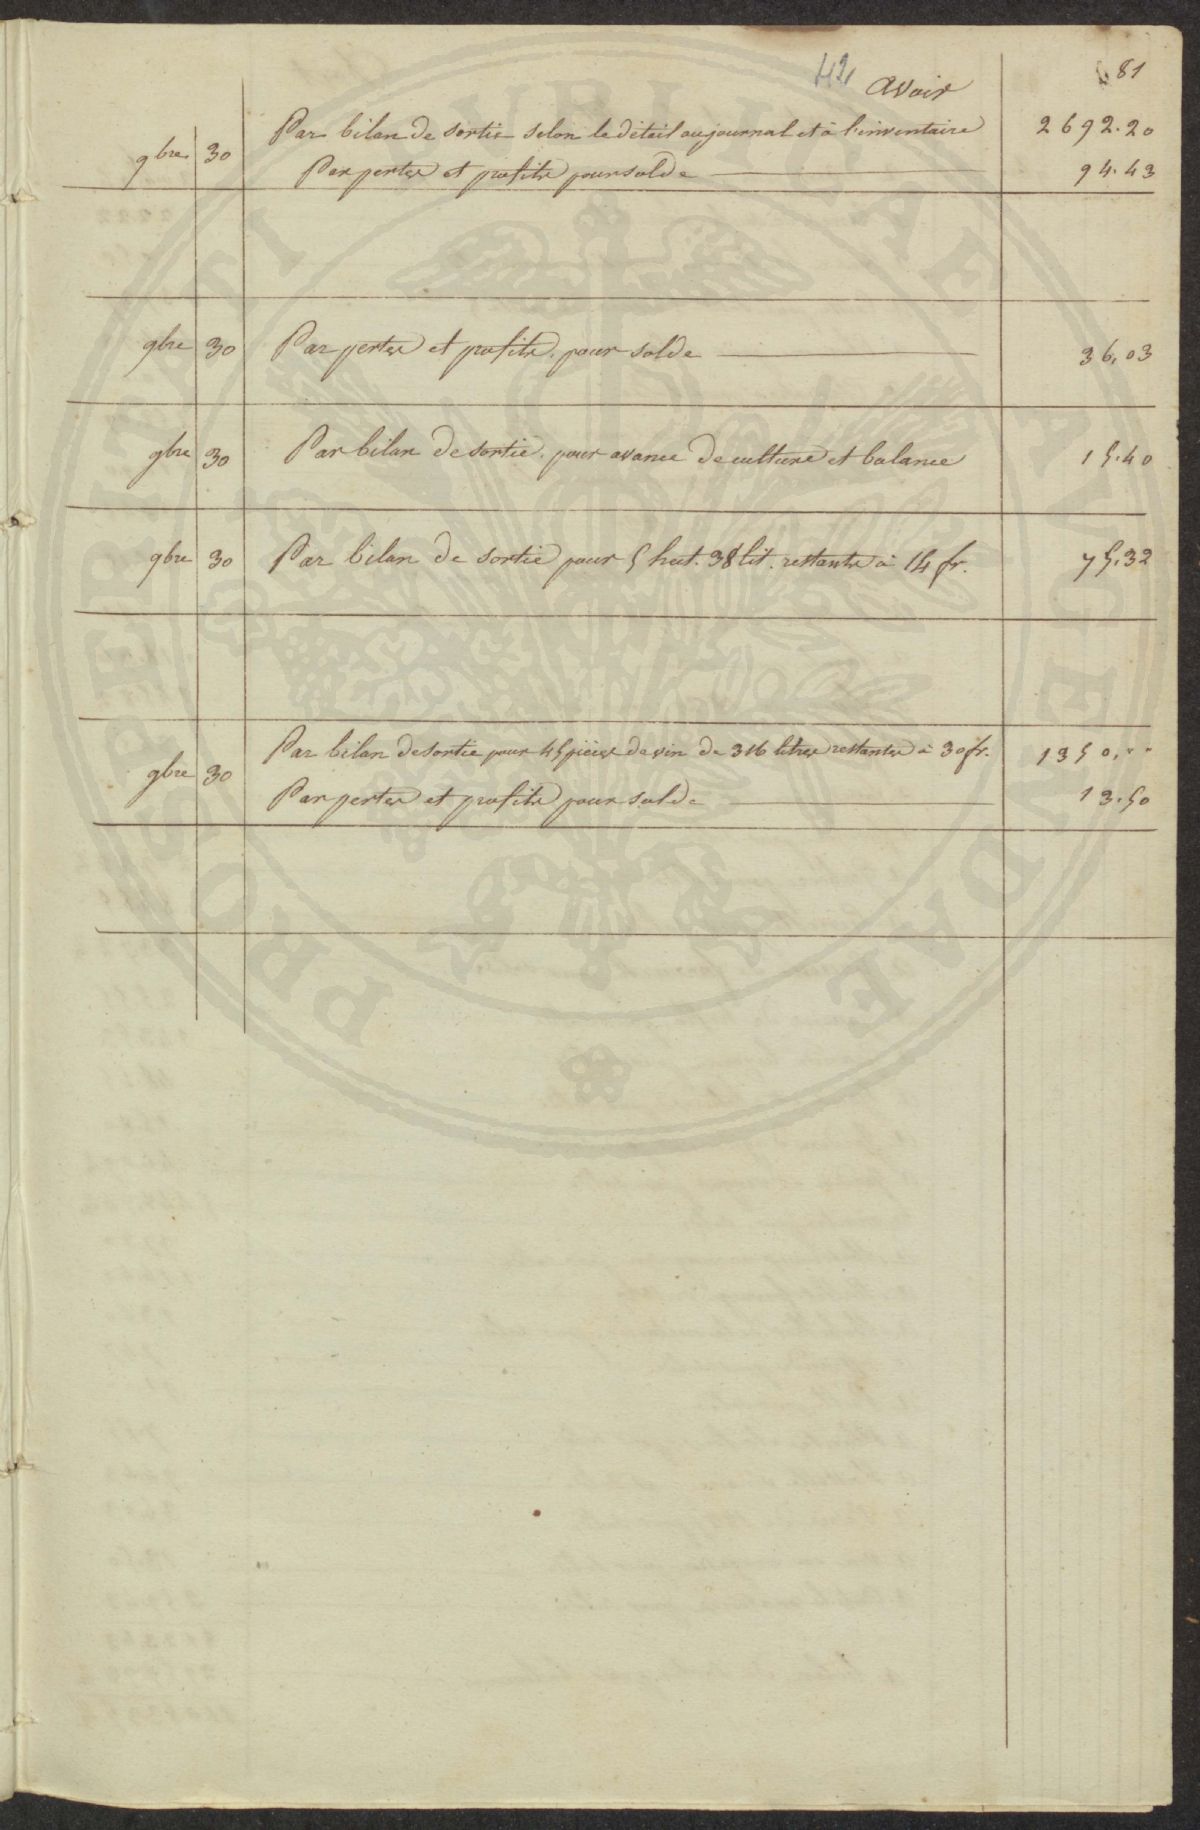 42
81
avoir
Par bilan de sortie selon le détail au journal et à l'inventaire 2692.20
9bre 30 Par pertes et profits pour solde 94.43
9bre 30 Par pertes et profits pour solde 36,03
9bre 30 Par bilan de sortie pour avance de culture et balance 15.40
9bre 30 Par bilan de sortie pour 5 hect. 38 lit. restants à 14 fr. 75,32
Par bilan de sortie pour 45 pièces de vin de 216 litres restantes à 30 fr. 1350,""
9bre 30 Par pertes et profits pour solde 13.50
PROSPERITATI PUBLICAE AUGENDAE